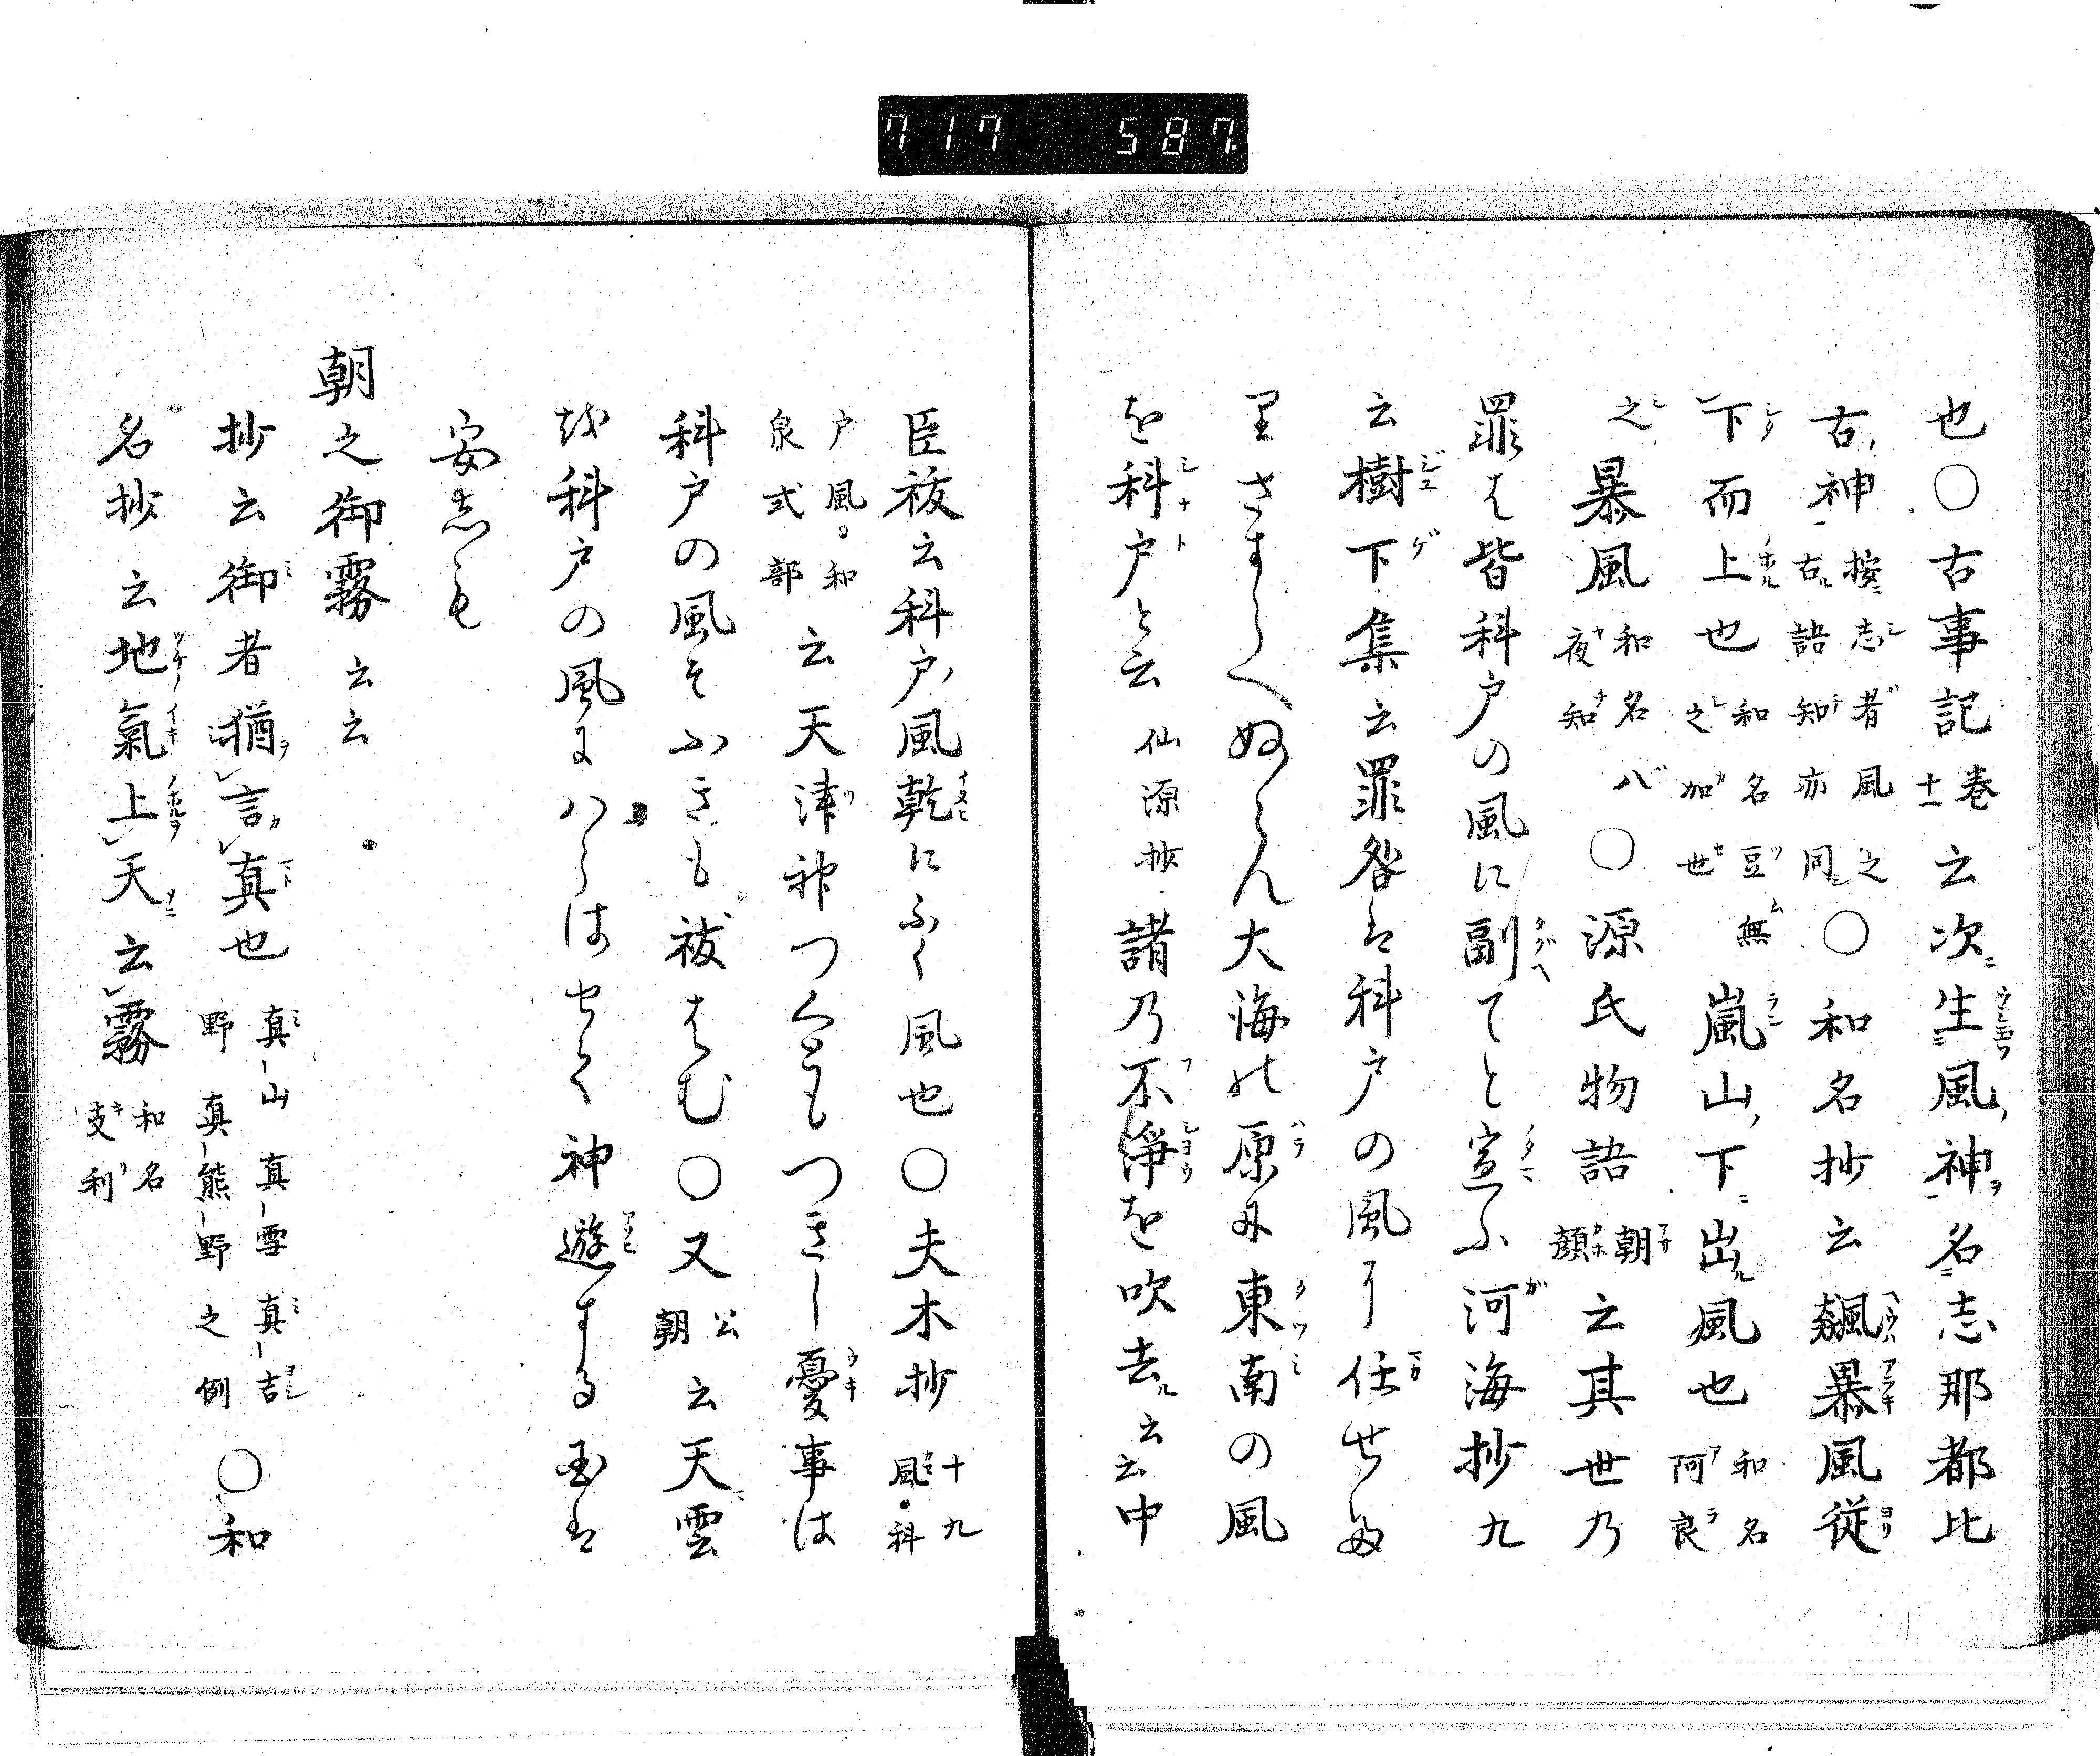 717 587.
也〇古事記十一巻云次生風神名志那都比
古神按志者風之古語知亦同〇和名抄云飆暴風従
下而上也和名豆無之加世嵐山下出風也和名阿良
之暴風和名八夜知〇源氏物語朝顔云其世乃
罪は皆科戸の風に副てと宣ふ河海抄九
云樹下集云罪咎は科戸の風に任せた
りさすらへぬらん大海の原に東南の風
を科戸と云仙源抄諸乃不浄を吹去云云中
臣祓云科戸風乾にふく風也〇夫木抄十九風。科
戸風。和泉式部云天津神つくともつきし憂事は
科戸の風そふきも祓はむ〇又公朝云天雲
を科戸の風にハらはせて神遊する玉は
安しも
朝之御霧云云
抄云御者猶言真也真山真雪真吉野真熊野之例〇和
名抄云地氣上天云霧和名支利